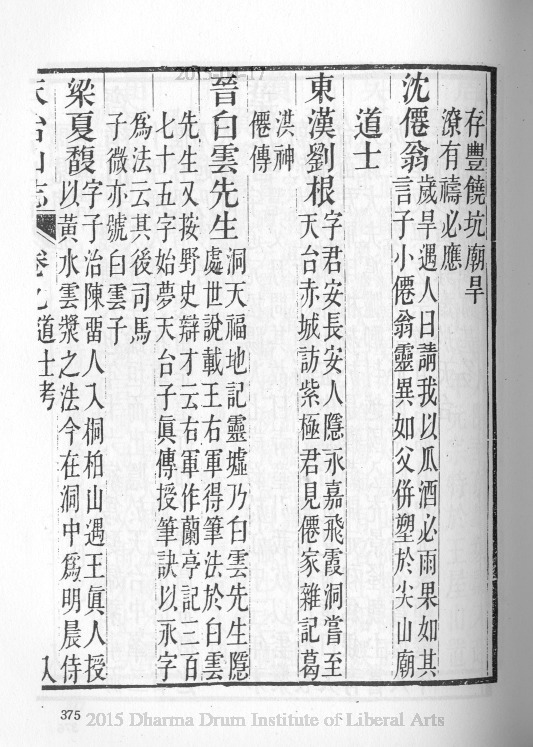 存豐饒坑廟旱
潦有禱必應
沈僊翁歲旱遇人曰請我以瓜酒必雨果如其
言子小僊翁靈異如父併塑於尖山廟
道士
東漢劉根字君安長安人隱永嘉飛霞洞嘗至
天台赤城訪紫極君見僊家雜記葛
洪神
僊傳
晉白雲先生洞天福地記靈墟乃白雲先生隱
處世說載王右軍得筆法於白雲
先生又按野史辯才云右軍作蘭亭記三百
七十五字始夢天台子眞傳授筆訣以永字
爲法云其後司馬
子微亦號白雲子
梁夏馥字子治陳畱人入桐柏山遇王眞人授
以黃水雲漿之法今在洞中爲明晨侍
天台山志 卷 道士考 八
375
2015 Dharma Drum Institute of Liberal Arts